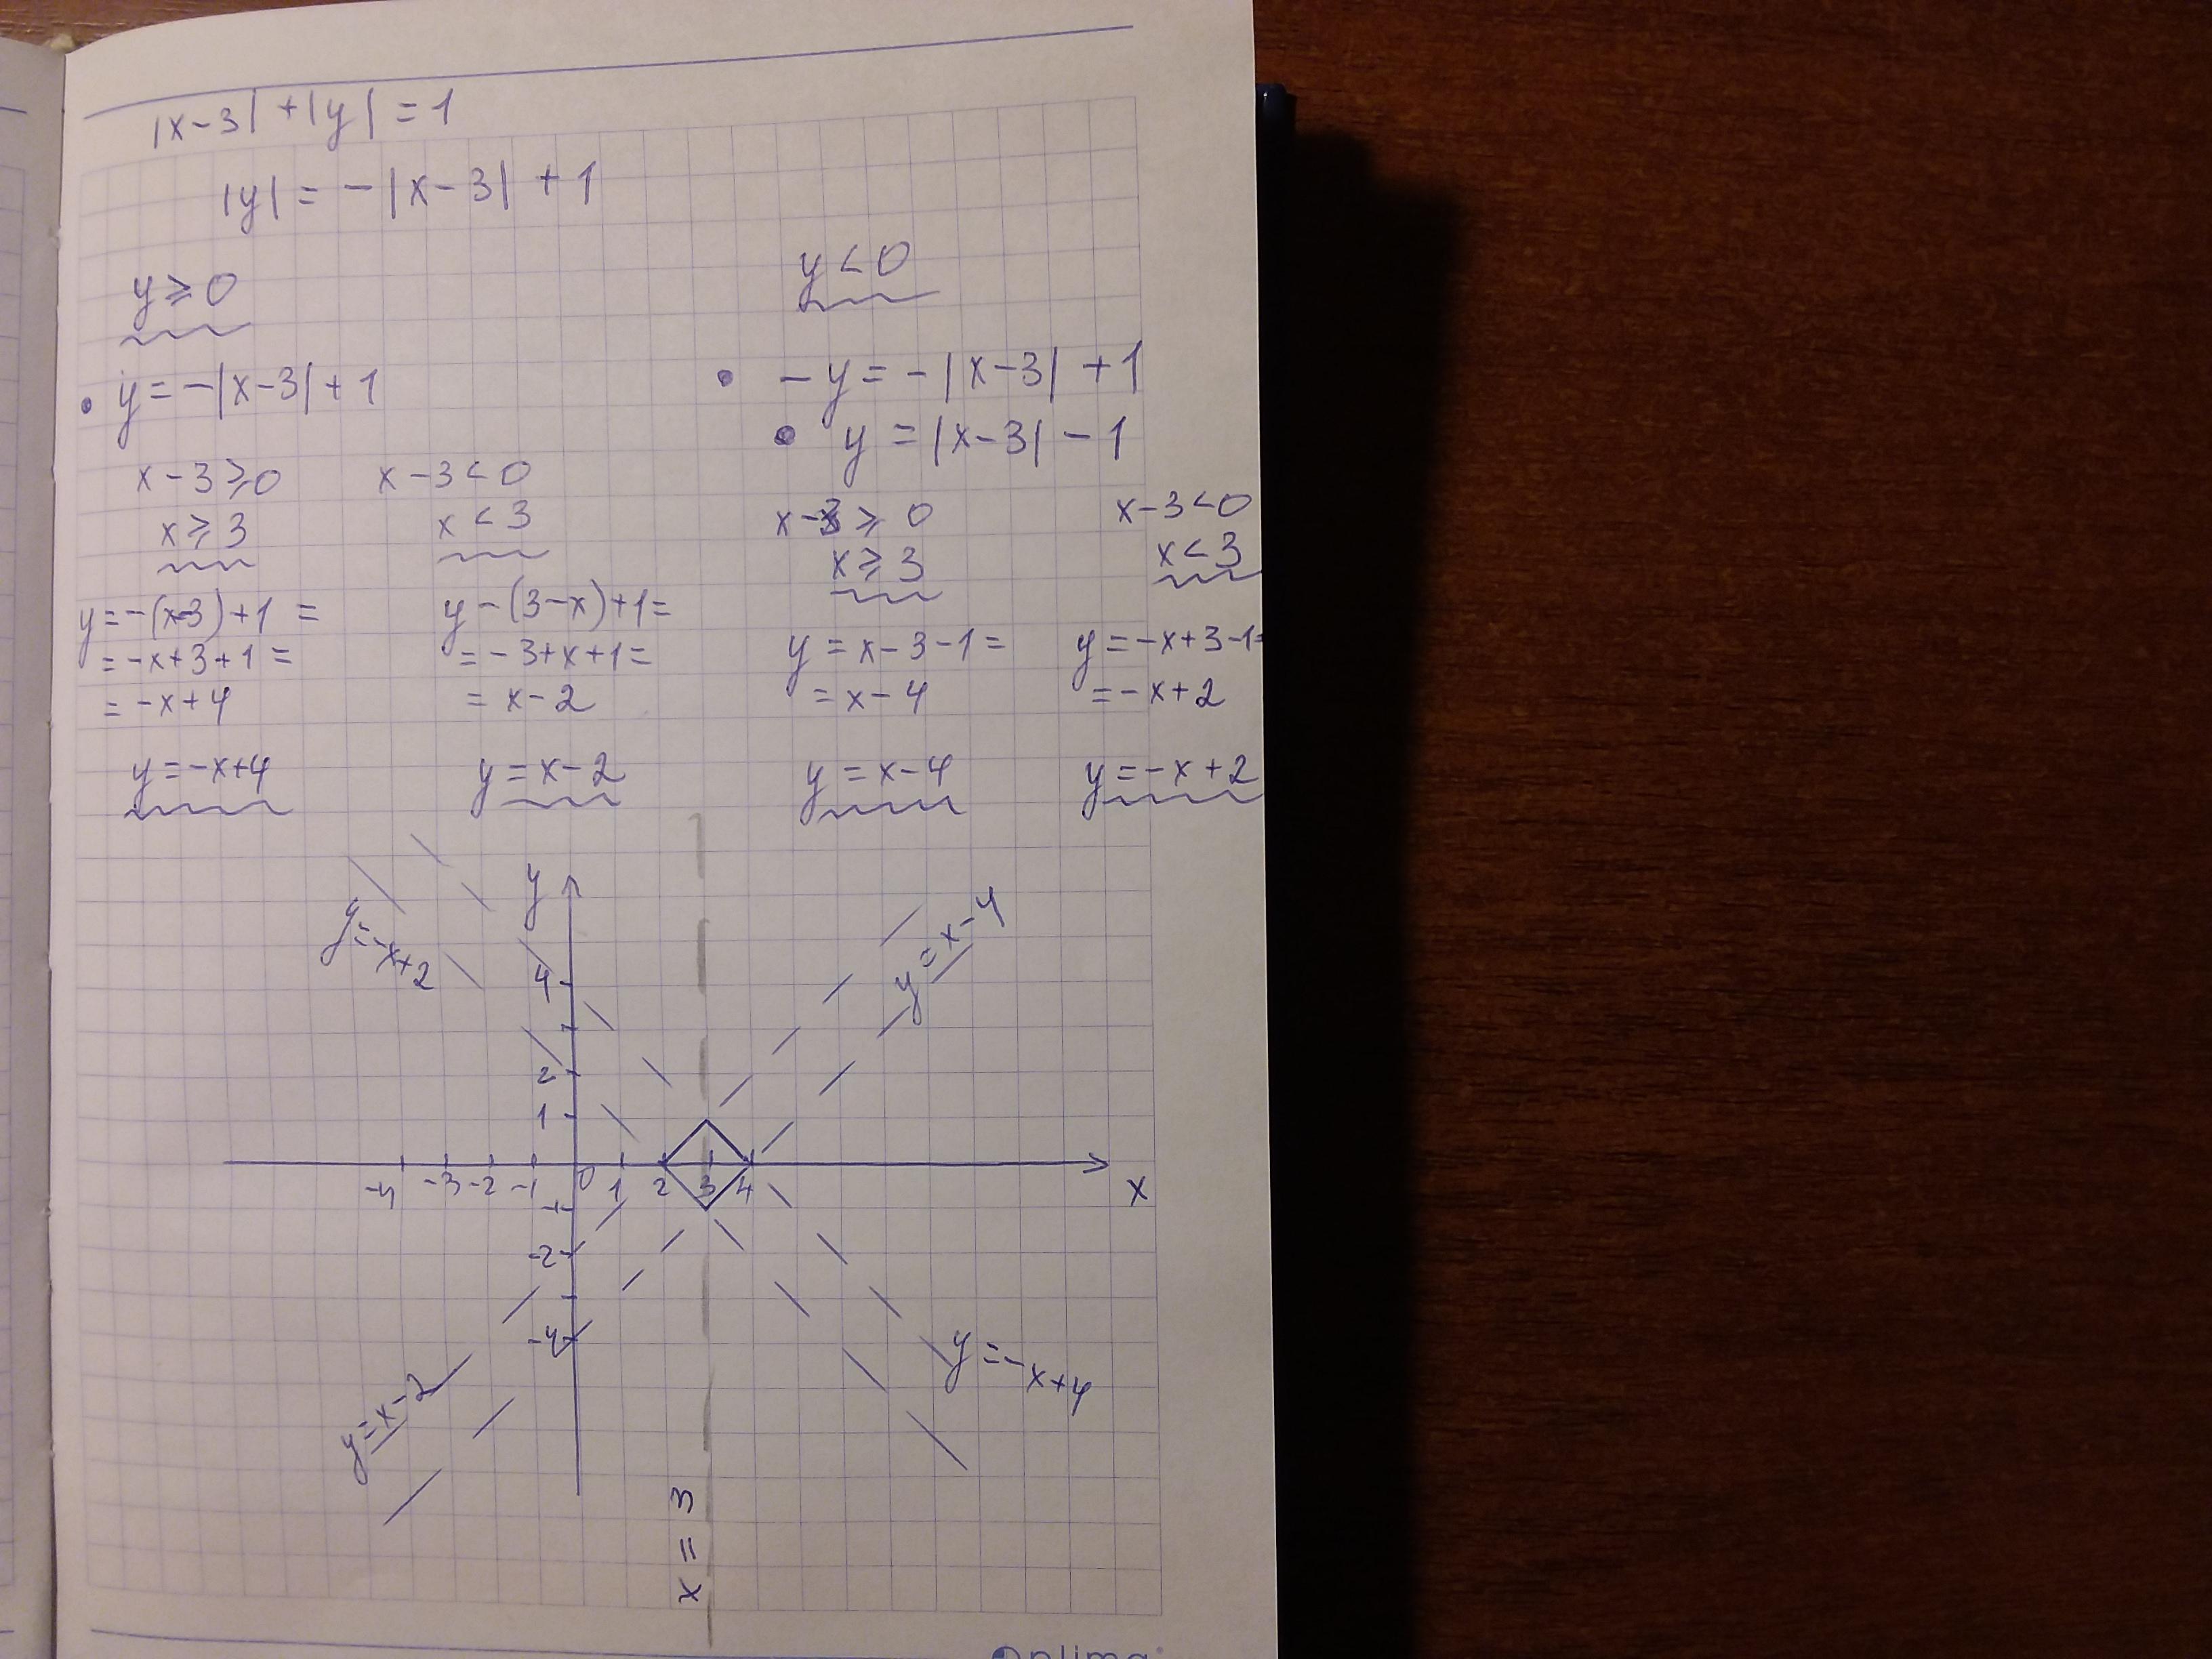 |x-3|+|y|=1
|y|=-|x-3|+1
y≥0
y<0
• y=-|x-3|+1
• -y=-|x-3|+1
• y=|x-3|-1
x-3≥0
x≥3
x-3<0
x<3
x-3≥0
x≥3
x-3<0
x<3
y=-(x-3)+1=
=-x+3+1=
=-x+4
y-(3-x)+1=
=-3+x+1=
=x-2
y=x-3-1=
=x-4
y=-x+3-1=
=-x+2
y=-x+4
y=x-2
y=x-4
y=-x+2
y
y=-x+2
y=x-4
4
2
1
-4 -3 -2 -1 0 1 2 3 4
x
-1
-2
-4
y=x-2
y=-x+4
x=3
Optima